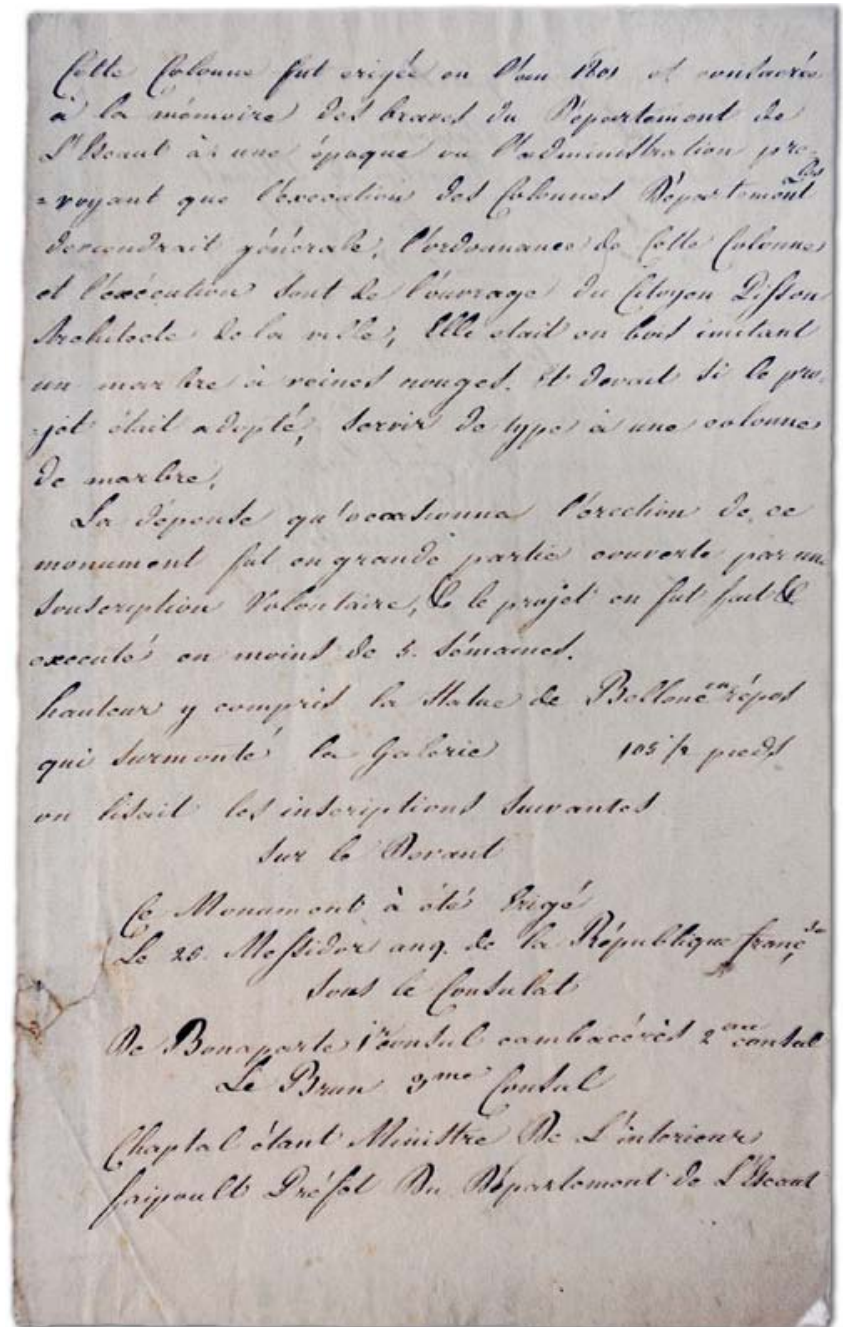 Cette Colonne fut erigée en l'an 1801 et consacrée
à la mémoire des braves du Département de
L'Escaut à une époque ou l'administration pré-
=voyant que l'execution des Colonnes Départementales
deviendrait générale, l'ordonnance de Cette Colonne
et l'exécution sont de l'ouvrage du Citoyen
Architecte de la ville, Elle etait en bois imitant
un marbre à veines rouges. Et devait si le pro-
-jet était adopté, servir de type à une colonne
de marbre.
La dépense qu'occasionna l'érection de ce
monument fut en grande partie couverte par une
souscription Volontaire, & le projet en fut fait &
executé en moins de 5. sémaines.
hauteur y compris la Statue de Bellone en répos
qui surmonté la Galerie 105 1/2 pieds
on lisait les inscriptions suivantes
sur le Devant
Ce Monument à été Erigé
Le 25 Messidor an 9. de la République franç.se
sous le Consulat
De Bonaparte 1er Consul cambacérès 2me consul
Le Brun 3me Consul
Chaptal étant Ministre De L'interieur
faipoult Préfet Du Département de L'Escaut